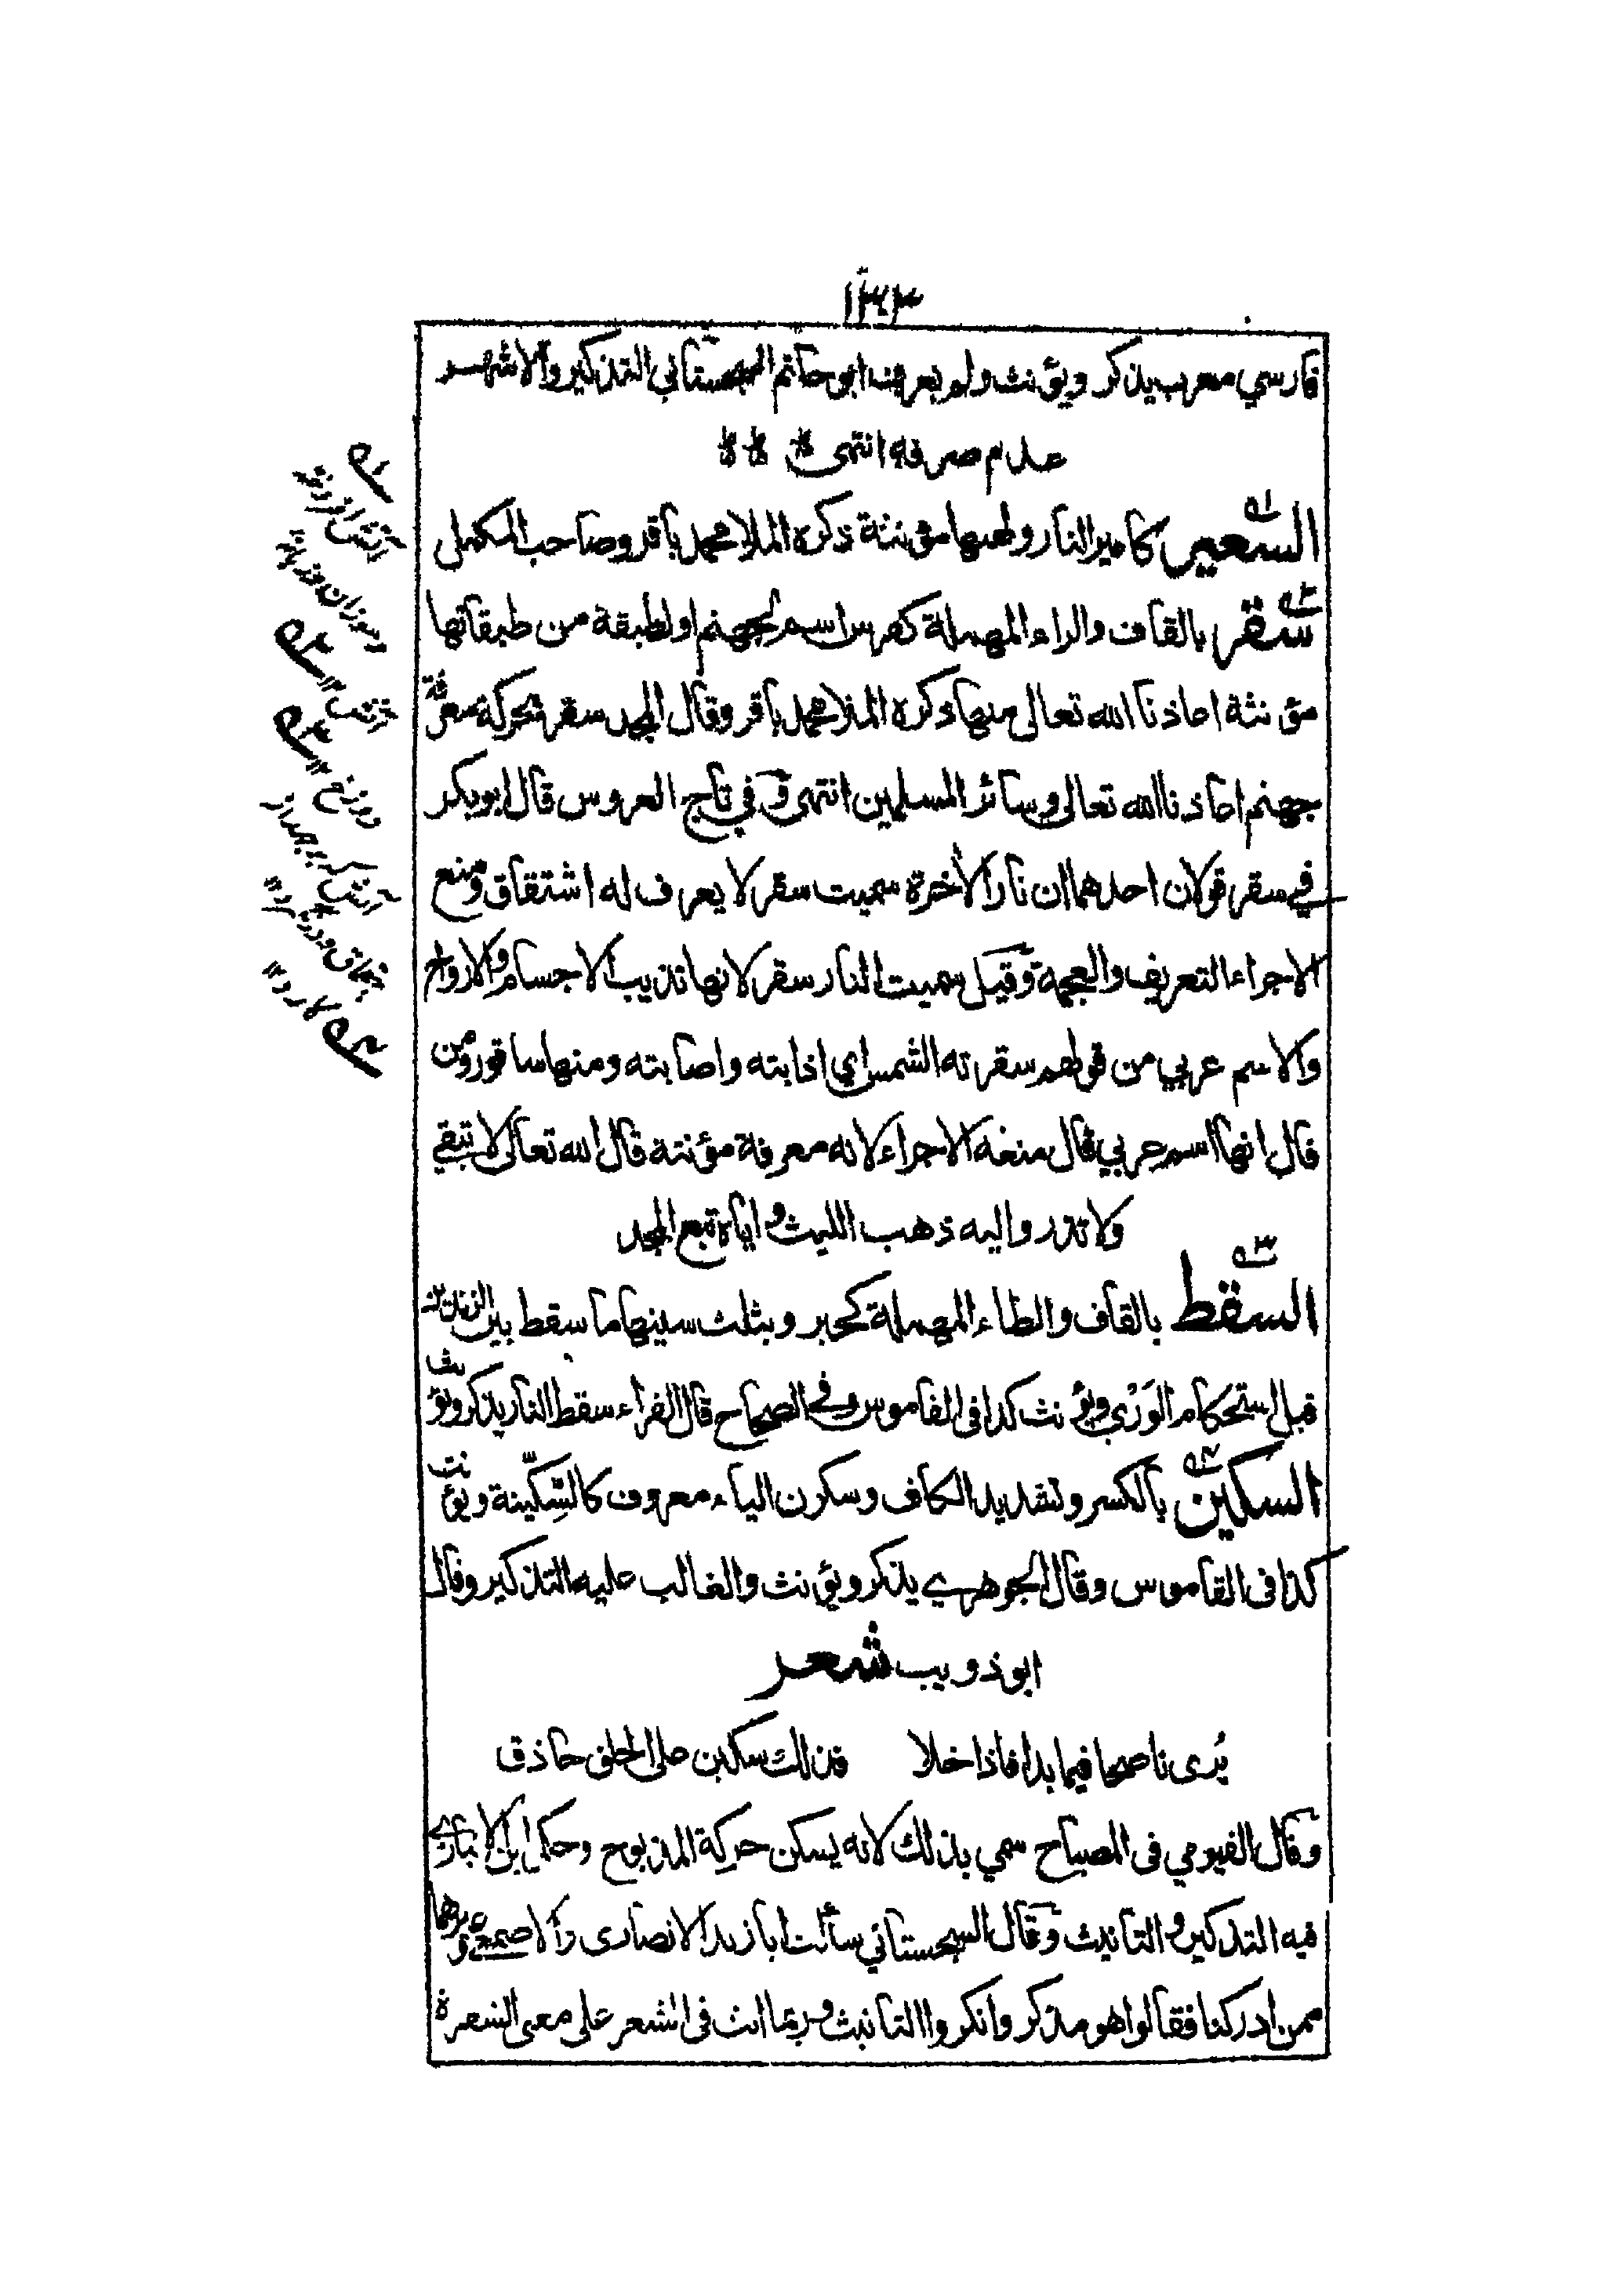 ١٣٣
فارسي معرب يذكر ويؤنث ولم يعرف ابو حاتم السجستاني التذكير والاشهر
عدم صرفه انتهى
السعير كامير النار ولهبها مؤنثة ذكره الملا محمد باقر وصاحب المكمل
سقر بالقاف والراء المهملة كفرس اسم لجهنم او لطبقة من طبقاتها
مؤنثة اعاذنا الله تعالى منها ذكره الملا محمد باقر وقال المجد سقر محركة معرفة
جهنم اعاذنا الله تعالى وسائر المسلمين انتهى وفي تاج العروس قال ابوبكر
في سقر قولان احدهما ان نار الآخرة سميت سقر لا يعرف له اشتقاق ومنع
الاجراء التعريف والعجمة وقيل سميت النار سقر لانها تذيب الاجسام والارواح
والاسم عربي من قولهم سقرته الشمس اي اذابته واصابته ومنها ساقور ومن
قال انها اسم عربي قال منعه الاجراء لانه معرفة مؤنثة قال الله تعالى لا تبقي
ولا تذر واليه ذهب الليث واياه تبع المجد
السقط بالقاف والطاء المهملة كحبر ويثلث سينها ما سقط بين الزندين
قبل استحكام الوَرْي ويؤنث كذا في القاموس وفي الصحاح قال الفراء سقط النار يذكر ويؤنث
السكين بالكسر وتشديد الكاف وسكون الياء معروف كالسِّكّينة ويؤنث
كذا في القاموس وقال الجوهري يذكر ويؤنث والغالب عليه التذكير وقال
ابو ذويب شعر
يُرى ناصحا فيما بدا فاذا خلا فذلك سكين على الحلق حاذق
وقال الفيومي في المصباح سمي بذلك لانه يسكن حركة المذبوح وحكى ابن الانباري
فيه التذكير والتانيث وقال السجستاني سألت ابا زيد الانصارى والاصمعي وغيرهما
ممن ادركنا فقالوا هو مذكر وانكروا التانيث وربما انث في الشعر على معنى الشفرة
آتش
دوزخ
آتش